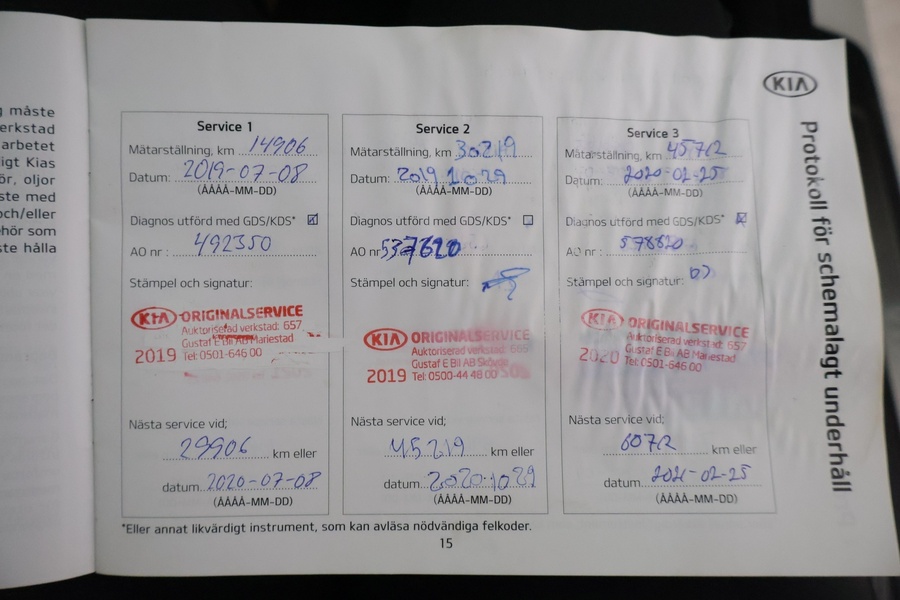 måste
erkstad
arbetet
igt Kias
ör, oljor
ste med
och/eller
ehör som
ste hålla
KIA
Protokoll för schemalagt underhåll
Service 1
Mätarställning, km 14906
Datum: 2019-07-08
(ÅÅÅÅ-MM-DD)
Diagnos utförd med GDS/KDS*
AO nr : 492350
Stämpel och signatur:
KIA ORIGINALSERVICE
Auktoriserad verkstad: 657
Gustaf E Bil AB Mariestad
2019 Tel: 0501-646 00
Nästa service vid;
29906 km eller
datum 2020-07-08
(ÅÅÅÅ-MM-DD)
Service 2
Mätarställning, km 30219
Datum: 2019 10-29
(ÅÅÅÅ-MM-DD)
Diagnos utförd med GDS/KDS*
AO nr 537620
Stämpel och signatur:
KIA ORIGINALSERVICE
Auktoriserad verkstad:
Gustaf E Bil AB Skövde
2019 Tel: 0500-44 48 00
Nästa service vid;
45219 km eller
datum 2020-10 29
(ÅÅÅÅ-MM-DD)
Service 3
Mätarställning, km 45712
Datum: 2020-02-25
(ÅÅÅÅ-MM-DD)
Diagnos utförd med GDS/KDS*
AO nr : 578820
Stämpel och signatur:
KIA ORIGINALSERVICE
Auktoriserad verkstad: 657
Gustaf E Bil AB Mariestad
2020 Tel: 0501-646 00
Nästa service vid;
60712 km eller
datum 2021-02-25
(ÅÅÅÅ-MM-DD)
*Eller annat likvärdigt instrument, som kan avläsa nödvändiga felkoder.
15